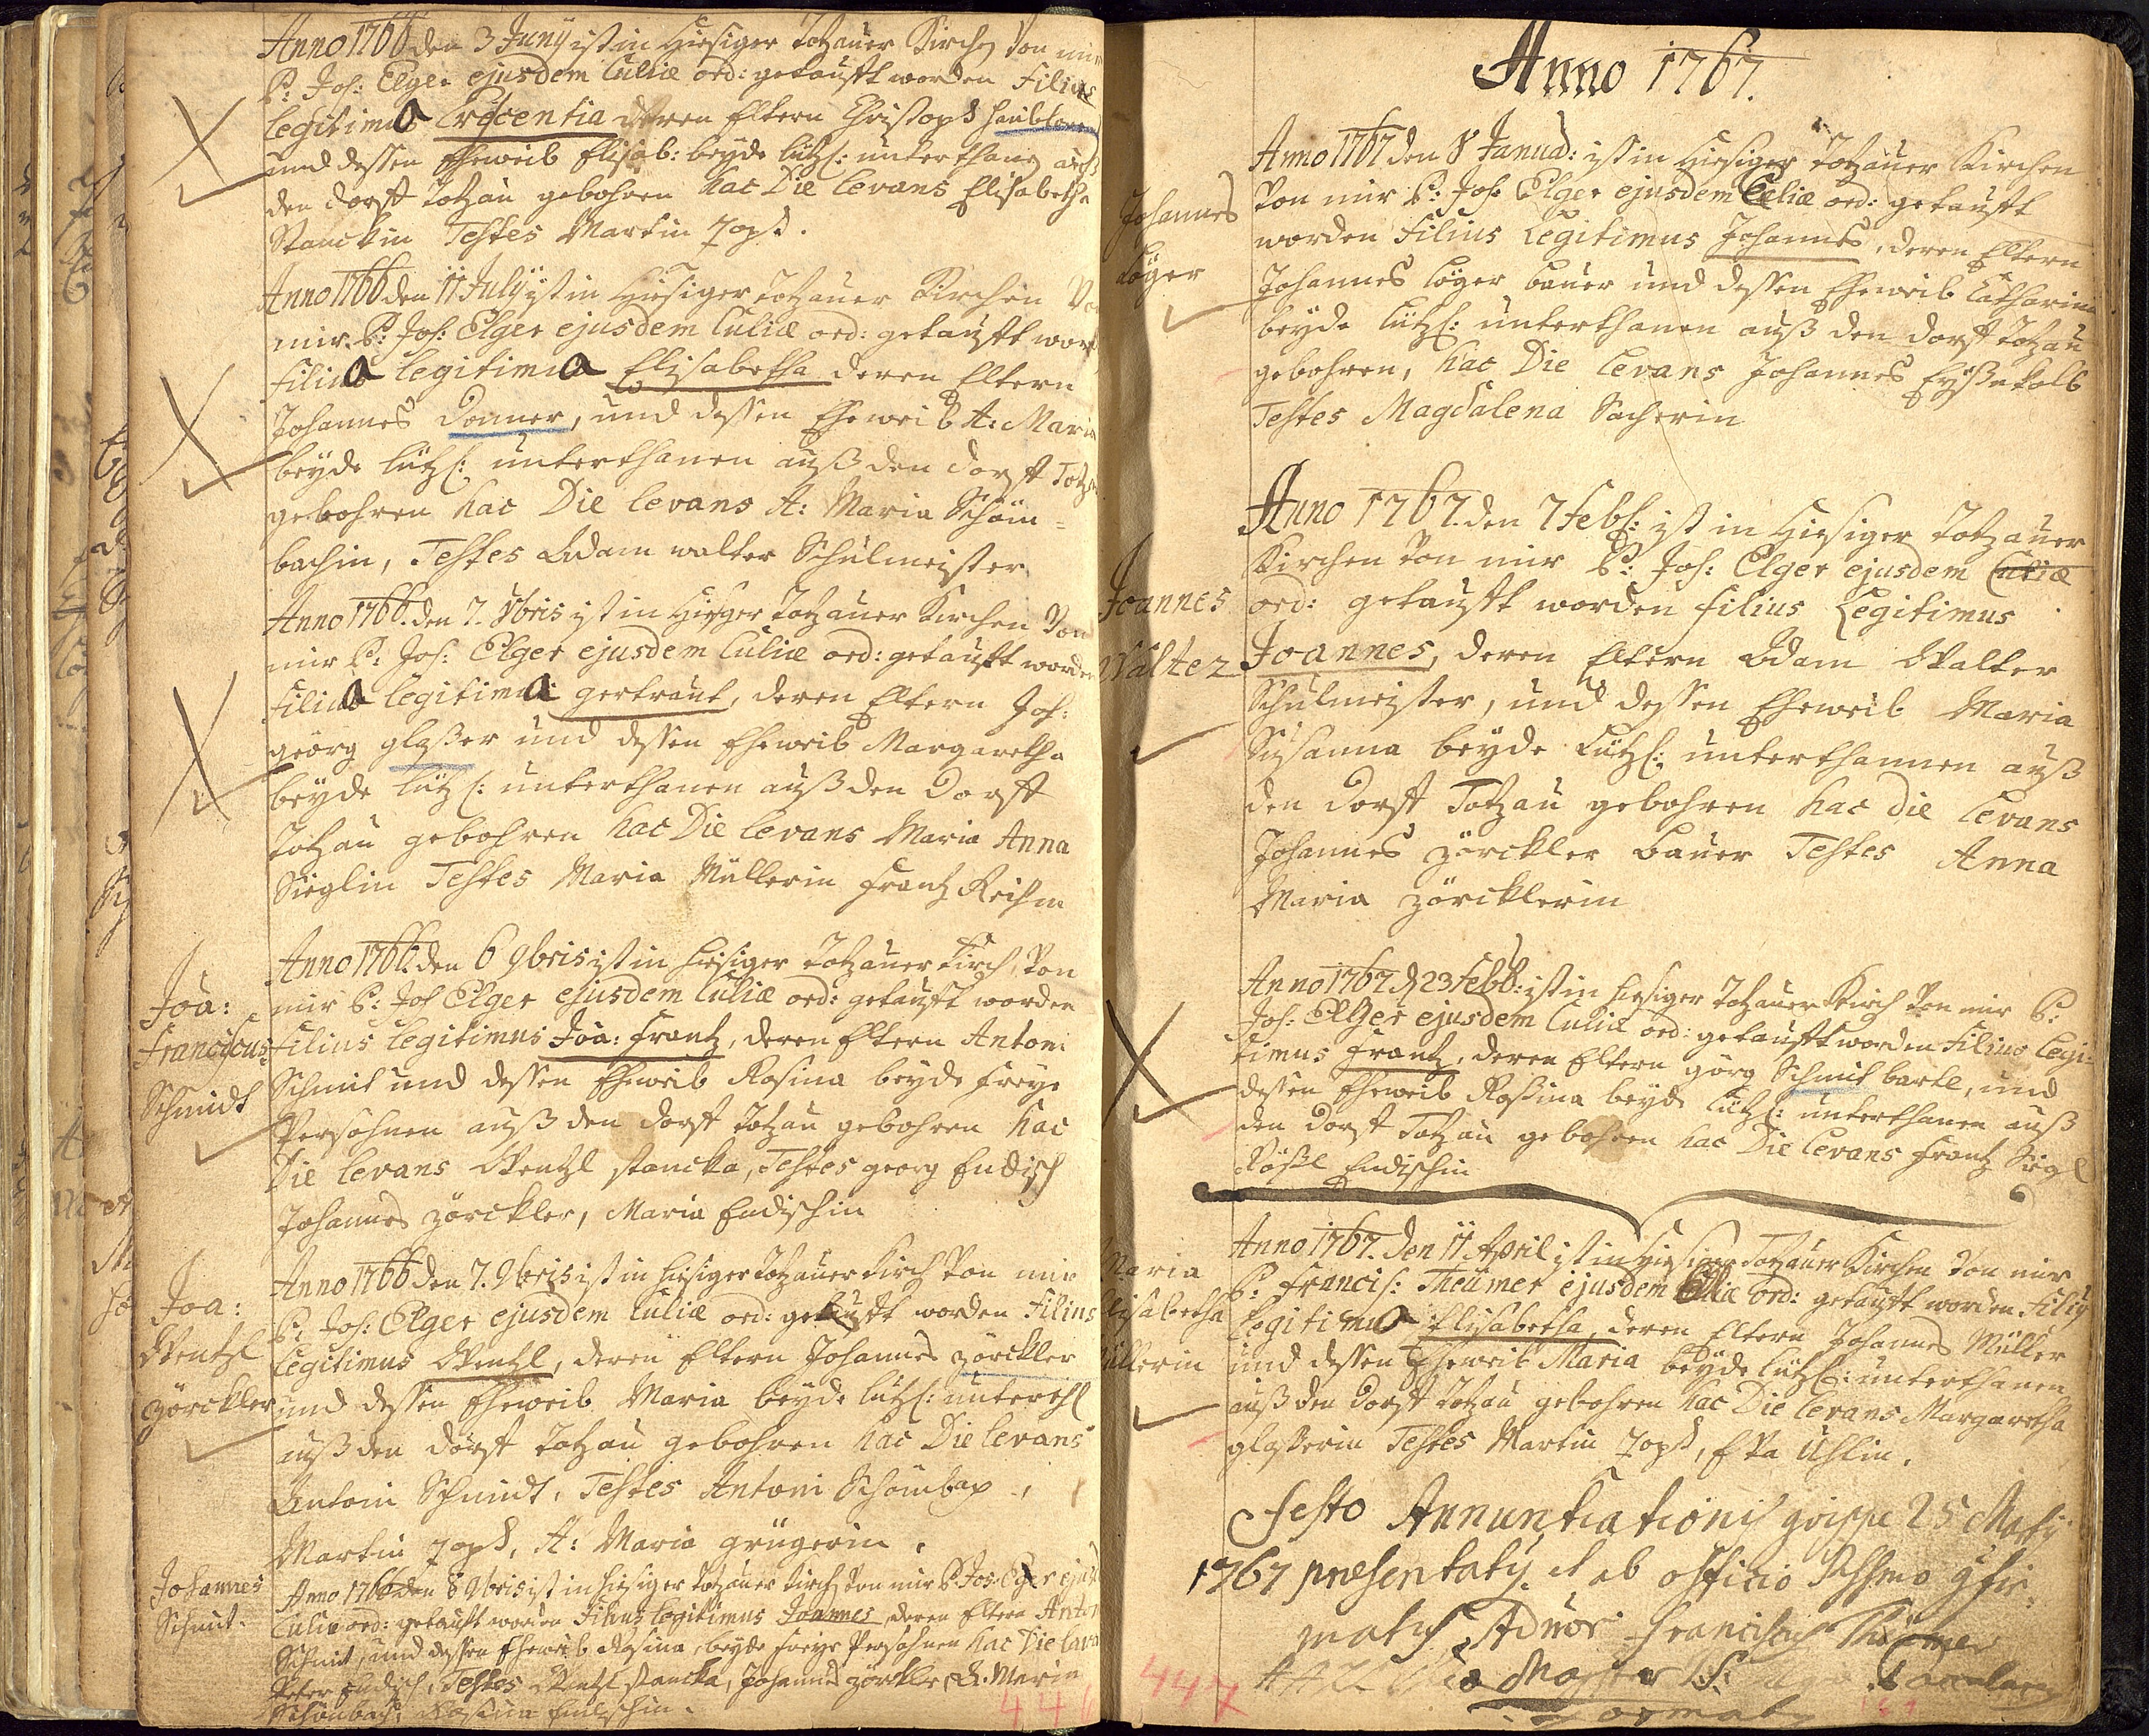 Anno 1766 den 3 Juny ist in Hiesiger Totzauer Kirchen Von mir
P: Jos: Elger ejusdem Culiæ ord: getaufft worden Filia
legitima Crescentia deren Eltern Christoph
und dessen Eheweib Elisab: beyde lützl: unterthanen auß
den dorff Totzau gebohren hac Die levans Elisabetha
Stanckin Testes Martin Zopf.
Anno 1766 den 11 July ist in Hiesiger Totzauer Kirchen Von
mir P: Jos: Elger ejusdem Culiæ ord: getaufft word
filia legitima Elisabetha deren Eltern
Johannes Donner, und dessen Eheweib A: Maria
beyde lützl: unterthanen auß den dorff Totzau
gebohren hac Die levans A: Maria Schöm=
bachin, Testes Adam walter Schulmeister
Anno 1766. den 7. 8bris ist in Hiesiger Totzauer Kirchen Von
mir P: Jos: Elger ejusdem Culiæ ord: getaufft worden
filia legitima gertraut, deren Eltern Jos:
georg glaßer und dessen Eheweib Margaretha
beyde lützl: unterthanen auß den Dorff
Totzau gebohren hac Die levans Maria Anna
Sieglin Testes Maria Müllerin Frantz
Joa:
Franciscus
Schmidt
Anno 1766. den 6 9bris ist in hiesiger Totzauer Kirch Von
mir P: Jos Elger ejusdem Culiæ ord: getaufft worden
Filius legitimus Joa: Frantz, deren Eltern Antoni
Schmit und dessen Eheweib Rosina beyde Freye
Persohnen auß den dorff Totzau gebohren hac
Die levans Wentzl stancka, Testes georg Endisch
Johannes Zörckler, Maria Endischin
Joa:
Wentzl
Zörckler
Anno 1766 den 7. 9bris ist in hiesiger Totzauer Kirch Von mir
P: Jos: Elger ejusdem Culiæ ord: getaufft worden Filius
legitimus Wentzl, deren Eltern Johannes Zörckler
und dessen Eheweib Maria beyde lützl: unterthl
auß den dorff Totzau gebohren hac Die levans
Antoni Schmidt, Testes Antoni Schömbax,
Martin Zopf, A: Maria grügerin.
Johannes
Schmit.
Anno 1766 den 8 9bris ist in hiesiger Totzauer Kirch Von mir P: Jos: Elger ejusd
Culiæ ord: getaufft worden Filius legitimus Joannes, deren Eltern Anton
Schmit, und dessen Eheweib Rosina, beyde Freye Persohnen hac Die leva
Peter Endisch, Testes Wentzl stancka, Johannes Zörckler, A: Maria
Schönbach: Rosina Endischin.
446
Anno 1767.
Johannes
Löger
Anno 1767 den 8 Januar: ist in Hiesiger Totzauer Kirchen
Von mir P: Jos: Elger ejusdem Culiæ ord: getaufft
worden Filius Legitimus Johannes, deren Eltern
Johannes Löger bauer und dessen Eheweib Catharina
beyde lützl: unterthanen auß den dorff Totzau
gebohren, hac Die levans Johannes Eyßekolb
Testes Magdalena Sacherin
Joannes
Walter
Anno 1767. den 7 Febl: ist in Hiesiger Totzauer
Kirchen Von mir P: Jos: Elger ejusdem Culiæ
ord: getaufft worden filius Legitimus
Joannes, deren Eltern Adam Walter
Schulmeister, und dessen Eheweib Maria
Susanna beyde Lützl: unterthannen auß
den Dorff Totzau gebohren hac die levans
Johannes Zörckler bauer Testes Anna
Maria Zörcklerin
Anno 1767 d 23 Febl: ist in hiesiger Totzauer Kirch Von mir P:
Jos: Elger ejusdem Culiæ ord: getaufft worden Filius legi=
timus Frantz, deren Eltern görg Schmit bartl, und
dessen Eheweib Roßina beyde lützl: unterthanen auß
den dorff Totzau gebohren hac Die levans Frantz Sigl
Endischin
Maria
Elisabetha
Müllerin
Anno 1767. den 11 April ist in Hiesiger Totzauer Kirchen Von mir
P: Francis: Theümer ejusdem Culiæ ord: getaufft worden Filia
Legitima Elisabetha, deren Eltern Johannes Müller
und dessen Eheweib Maria beyde lützl: unterthanen
auß den dorff Totzau gebohren hac Die levans Margaretha
glaßerin Testes Martin Zopf, Eva Uhlin.
Festo Annuntiationis quippe 25 Martij
1767 præsentatus et ab officio confir=
matus Franciscus Theümer
447